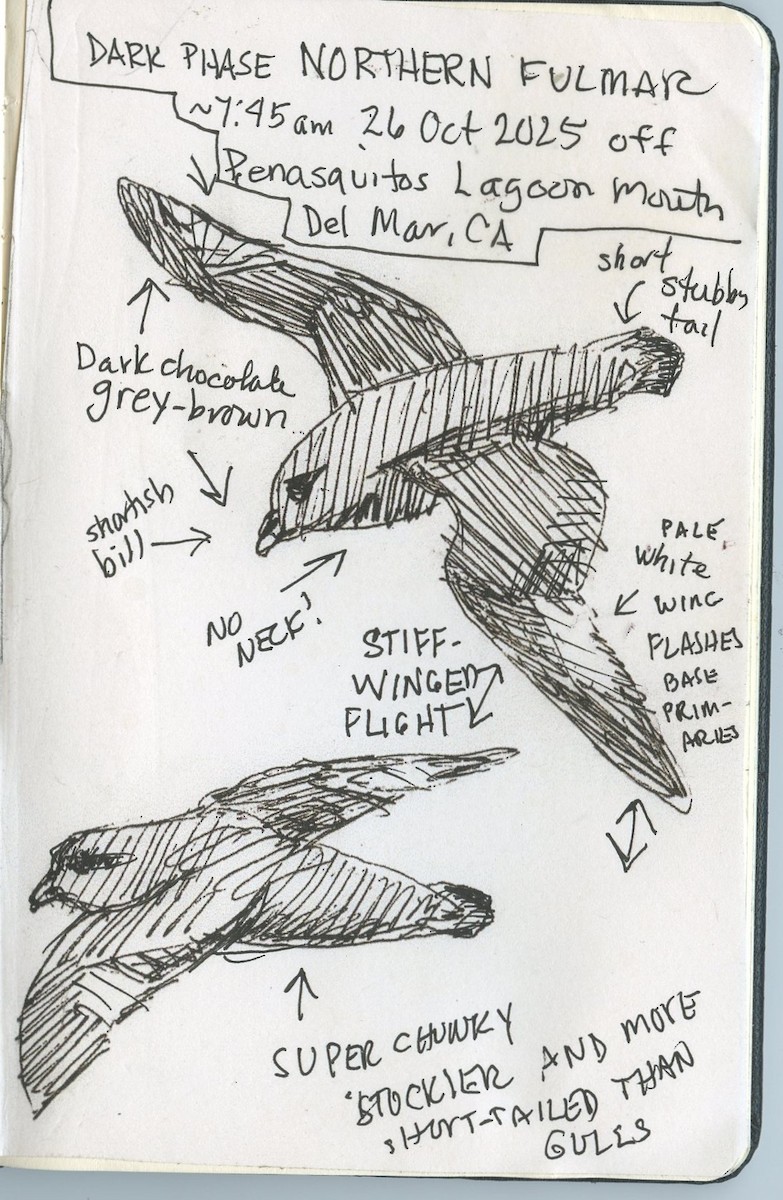 DARK PHASE NORTHERN FULMAR
~7:45am 26 Oct 2025 off
Penasquitos Lagoon mouth
Del Mar, CA
short
stubby
tail
Dark chocolate
grey-brown
shortish
bill
NO
NECK!
PALE
White
WING
FLASHES
BASE
PRIM-
ARIES
STIFF-
WINGED
FLIGHT
SUPER CHUNKY
STOCKIER AND MORE
SHORT-TAILED THAN
GULLS